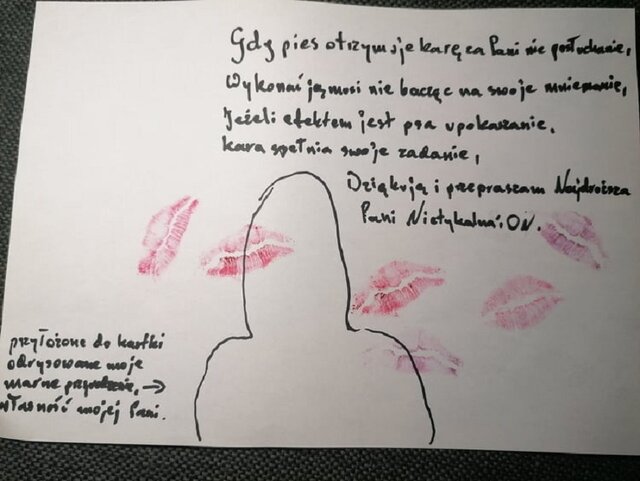 Gdy pies otrzymuje karę za Pani nie posłuchanie,
Wykonać ją musi nie bacząc na swoje mniemanie,
Jeżeli efektem jest psa upokarzanie,
kara spełnia swoje zadanie,
Dziękuję i przepraszam Najdroższa
Pani Nietykalna;ON.
przyłożone do kartki
odrysowane moje
marne przyrodzenie, →
własność mojej Pani.